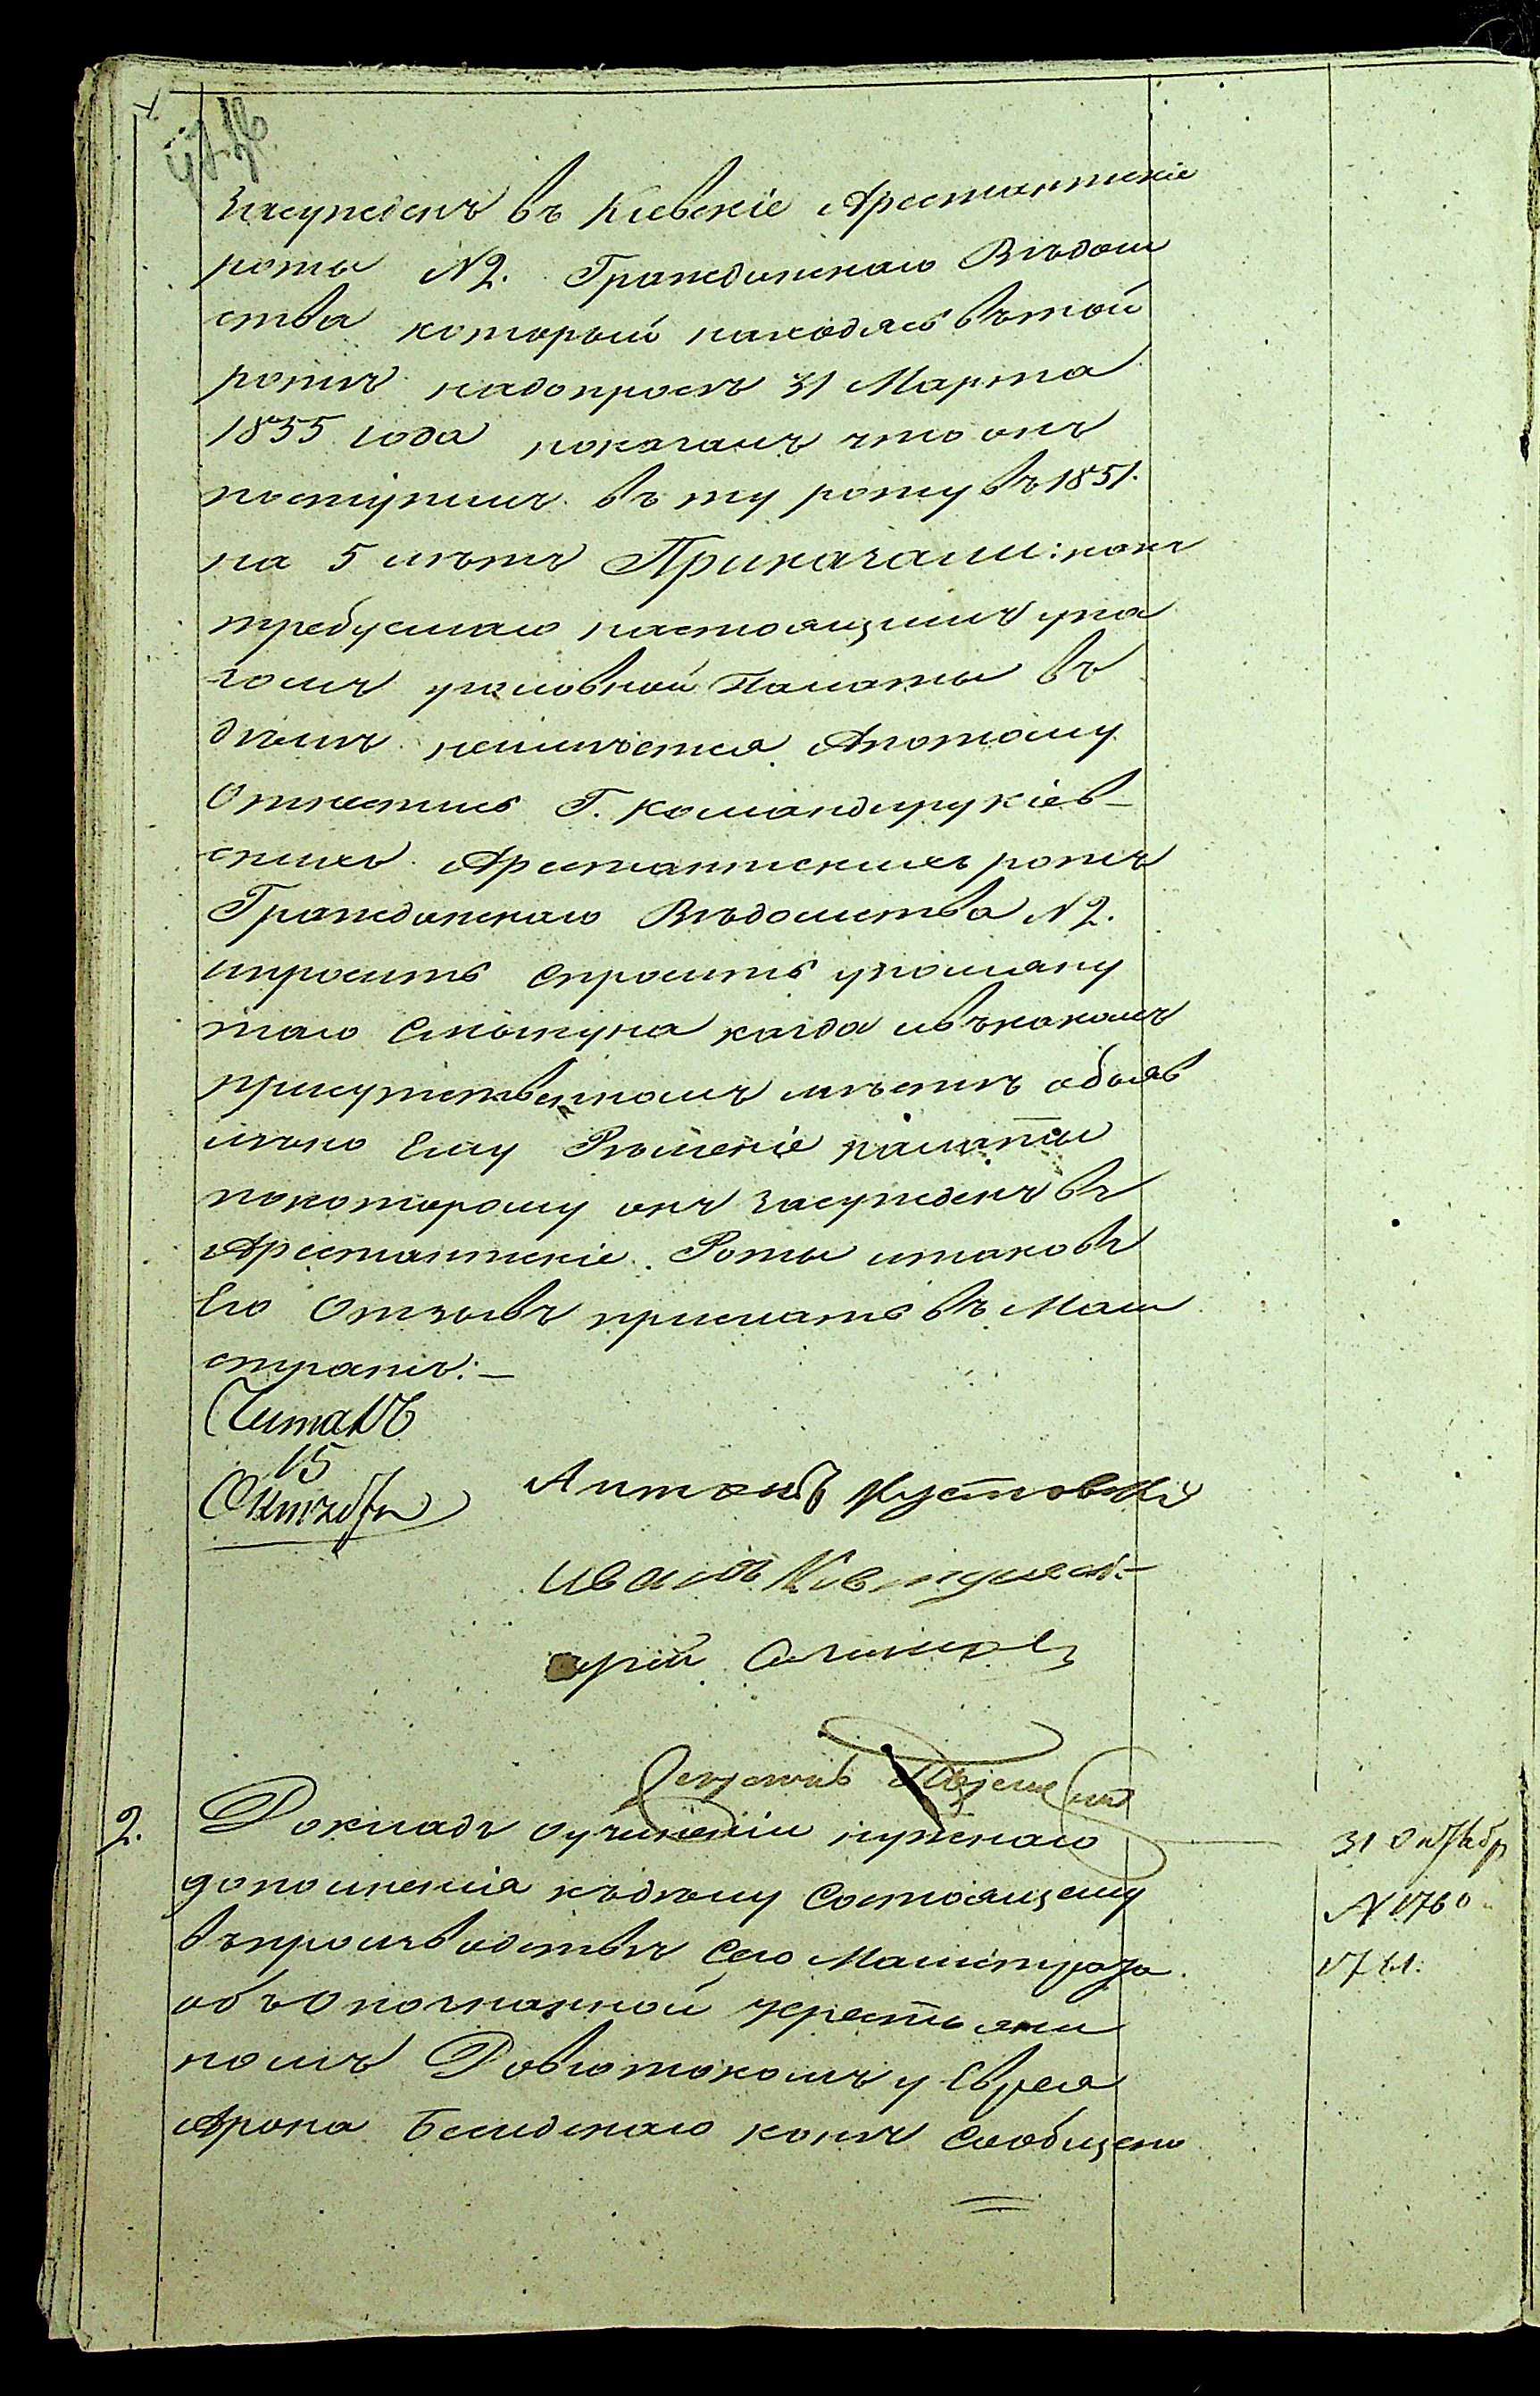 засужденъ въ Кіевскіе Арестантскіе
роты N 2. Гражданскаго Вѣдом
ства который находясь въ той
ротѣ на допросѣ 31 Марта
1855 года показалъ что онъ
поступилъ въ ту роту въ 1851.
на 5 лѣтъ Приказали: какъ
требуемаго настоящимъ ука
зомъ уголовной Палаты въ
дѣлѣ неимѣется. Апотому
Отнестись Г. командиру кіев-
скихъ Арестантскихъ ротъ
Гражданскаго Вѣдомства N 2.
ипросить спросить упомяну
таго когда ивъкакомъ
присутственномъ мѣстѣ объяв
лѣно Ему Рѣшеніе палаты
покоторому онъ засужденъ въ
Арестантскіе Роты итаковъ
Его Отзывъ прислать въ Маги
стратъ:-
Читалъ
15
Октября
Антонъ Кустовскій
Иванъ
Юрій
2. Докладъ Оучиненіи нужнаго
дополненія къдѣлу Состоящему
въпроизводствѣ Сего Магистрата
объ Опознанной Крестьяни
номъ у Еврея
Арона конѣ Сообщено
31 Октябр
N 1760
1761.